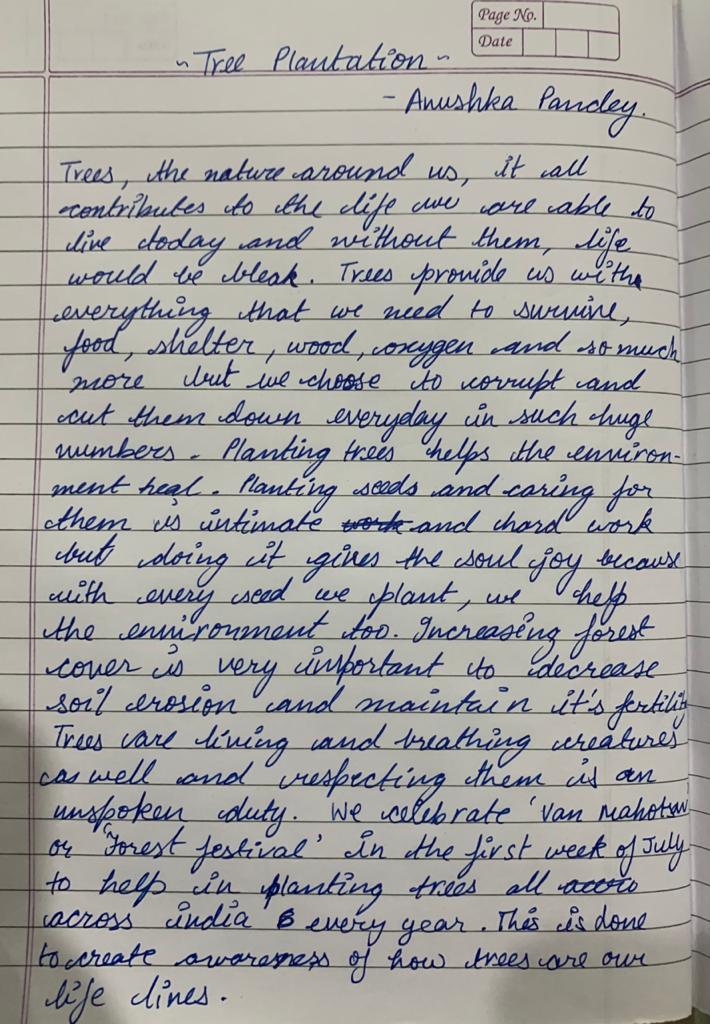 Page No.
Date
~ Tree Plantation ~
- Anushka Pandey.
Trees, the nature around us, it all
contributes to the life we are able to
live today and without them, life
would be bleak. Trees provide us with
everything that we need to survive,
food, shelter, wood, oxygen and so much
more but we choose to corrupt and
cut them down everyday in such huge
numbers. Planting trees helps the environ-
ment heal. Planting seeds and caring for
them is intimate work and hard work
but doing it gives the soul joy because
with every seed we plant, we help
the environment too. Increasing forest
cover is very important to decrease
soil erosion and maintain it's fertility
Trees are living and breathing creatures
as well and respecting them is an
unspoken duty. We celebrate 'Van Mahotsav'
or 'Forest festival' in the first week of July
to help in planting trees all accro
across india every year. This is done
to create awareness of how trees are our
life lines.